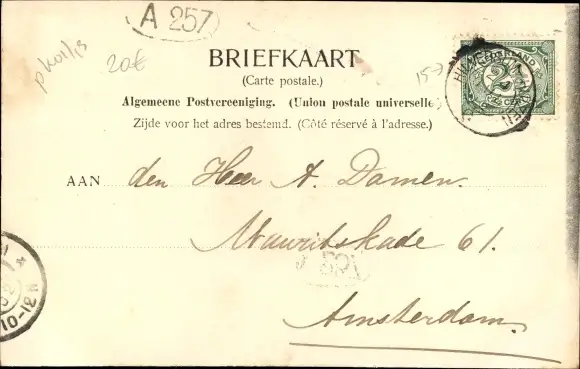 A 257
pkoil/s
20€
15→
BRIEFKAART
(Carte postale.)
Algemeene Postvereeniging. (Union postale universelle)
Zijde voor het adres bestemd. (Côté réservé à l'adresse.)
NEDERLAND
2½
AAN den Heer A. Damen.
Mauritskade 61.
Amsterdam.
10-12N